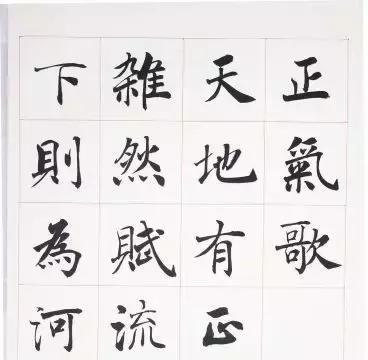 正氣歌
天地有正
雑然賦流
下則為河